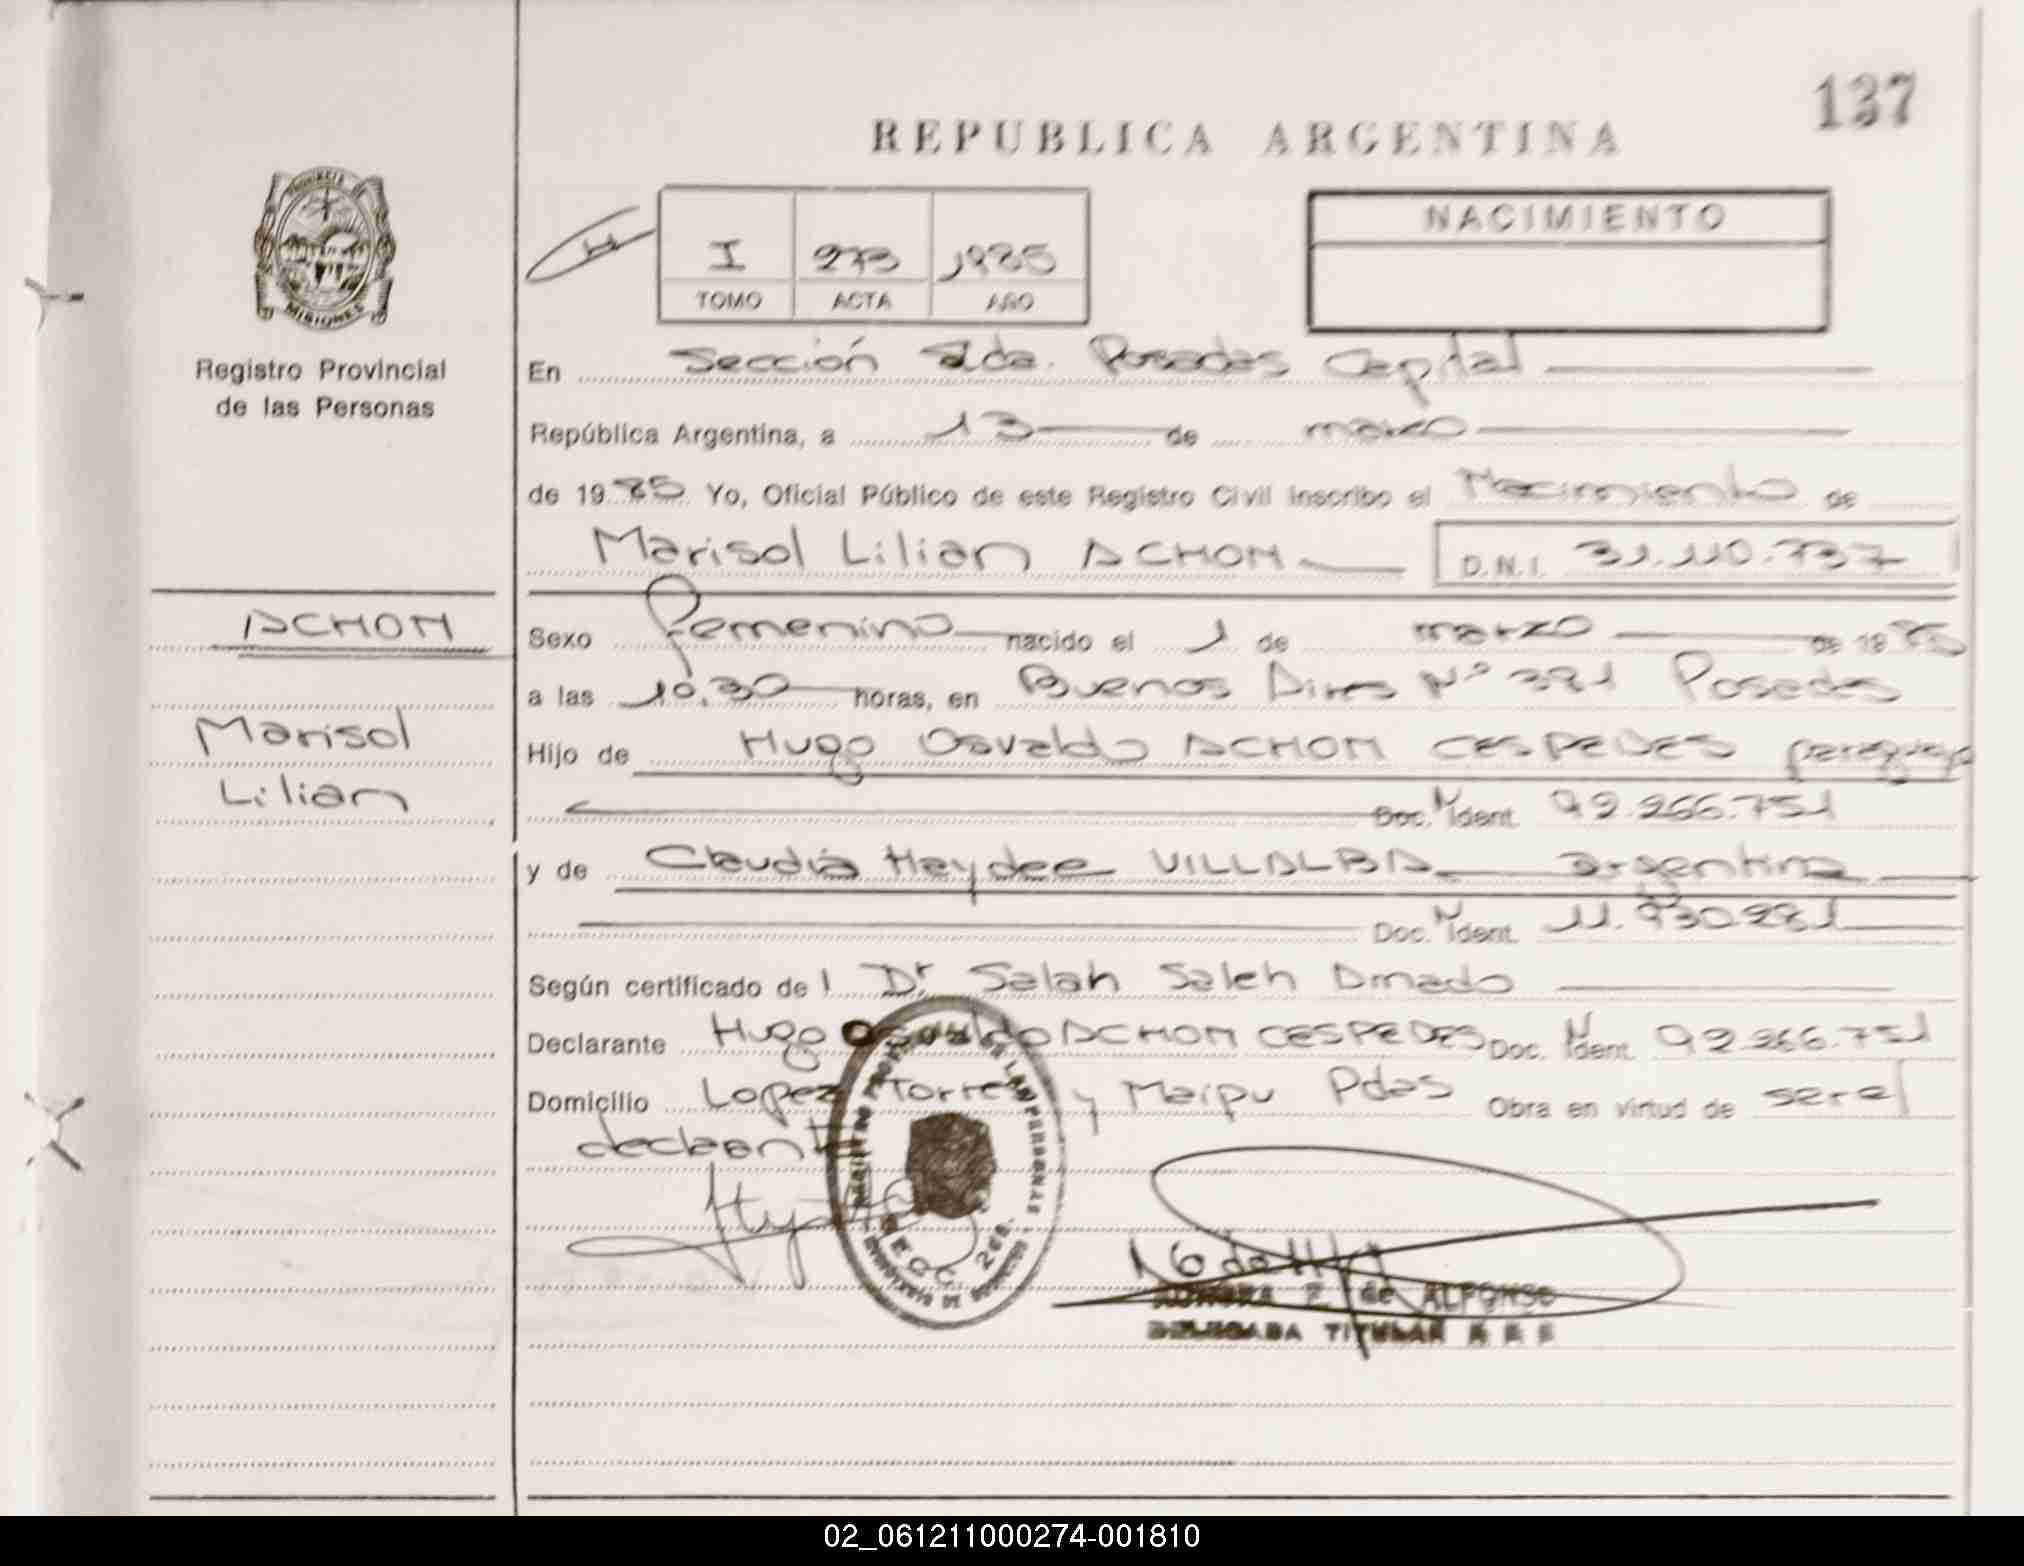 137
REPUBLICA ARGENTINA
PROVINCIA DE
MISIONES
Registro Provincial
de las Personas
H
I 273 1985
TOMO ACTA AÑO
NACIMIENTO
En Sección 2da. Posadas Capital
República Argentina, a 13 de marzo
de 1985 Yo, Oficial Público de este Registro Civil inscribo el Nacimiento de
Marisol Lilian ACHON D.N.I. 31.110.737
ACHON
Sexo Femenino nacido el 1 de marzo de 1985
a las 10.30 horas, en Buenos Aires Nº 381 Posadas
Marisol
Hijo de Hugo Osvaldo ACHON CESPEDES paraguayo
Lilian
Doc. N Ident. 92.266.751
y de Claudia Haydee VILLALBA argentina
Doc. N Ident. 11.930.281
Según certificado de l Dr Salah Saleh Amado
Declarante Hugo Osvaldo ACHON CESPEDES Doc. N Ident. 92.266.751
Domicilio Lopez Torres y Maipu Pdas Obra en virtud de ser el
declarant
SECC. 2da.
de ALFONSO
DELEGADA TITULAR
02_061211000274-001810